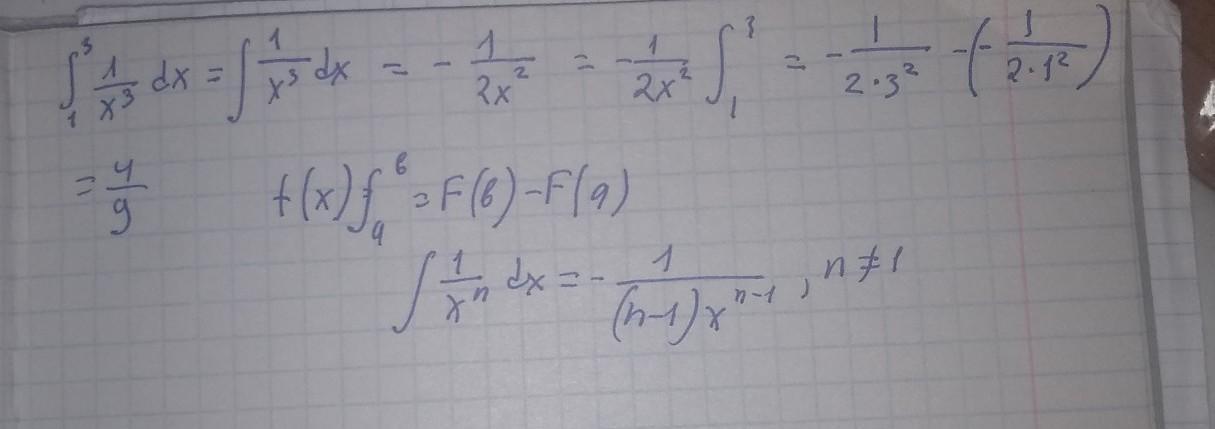 ∫₁³ 1/x³ dx = ∫ 1/x³ dx = - 1/2x² = - 1/2x² ∫₁³ = - 1/2·3² - (- 1/2·1²)
= 4/9 f(x) ∫ₐᵇ = F(b) - F(a)
∫ 1/xⁿ dx = - 1/(n-1)xⁿ⁻¹, n ≠ 1